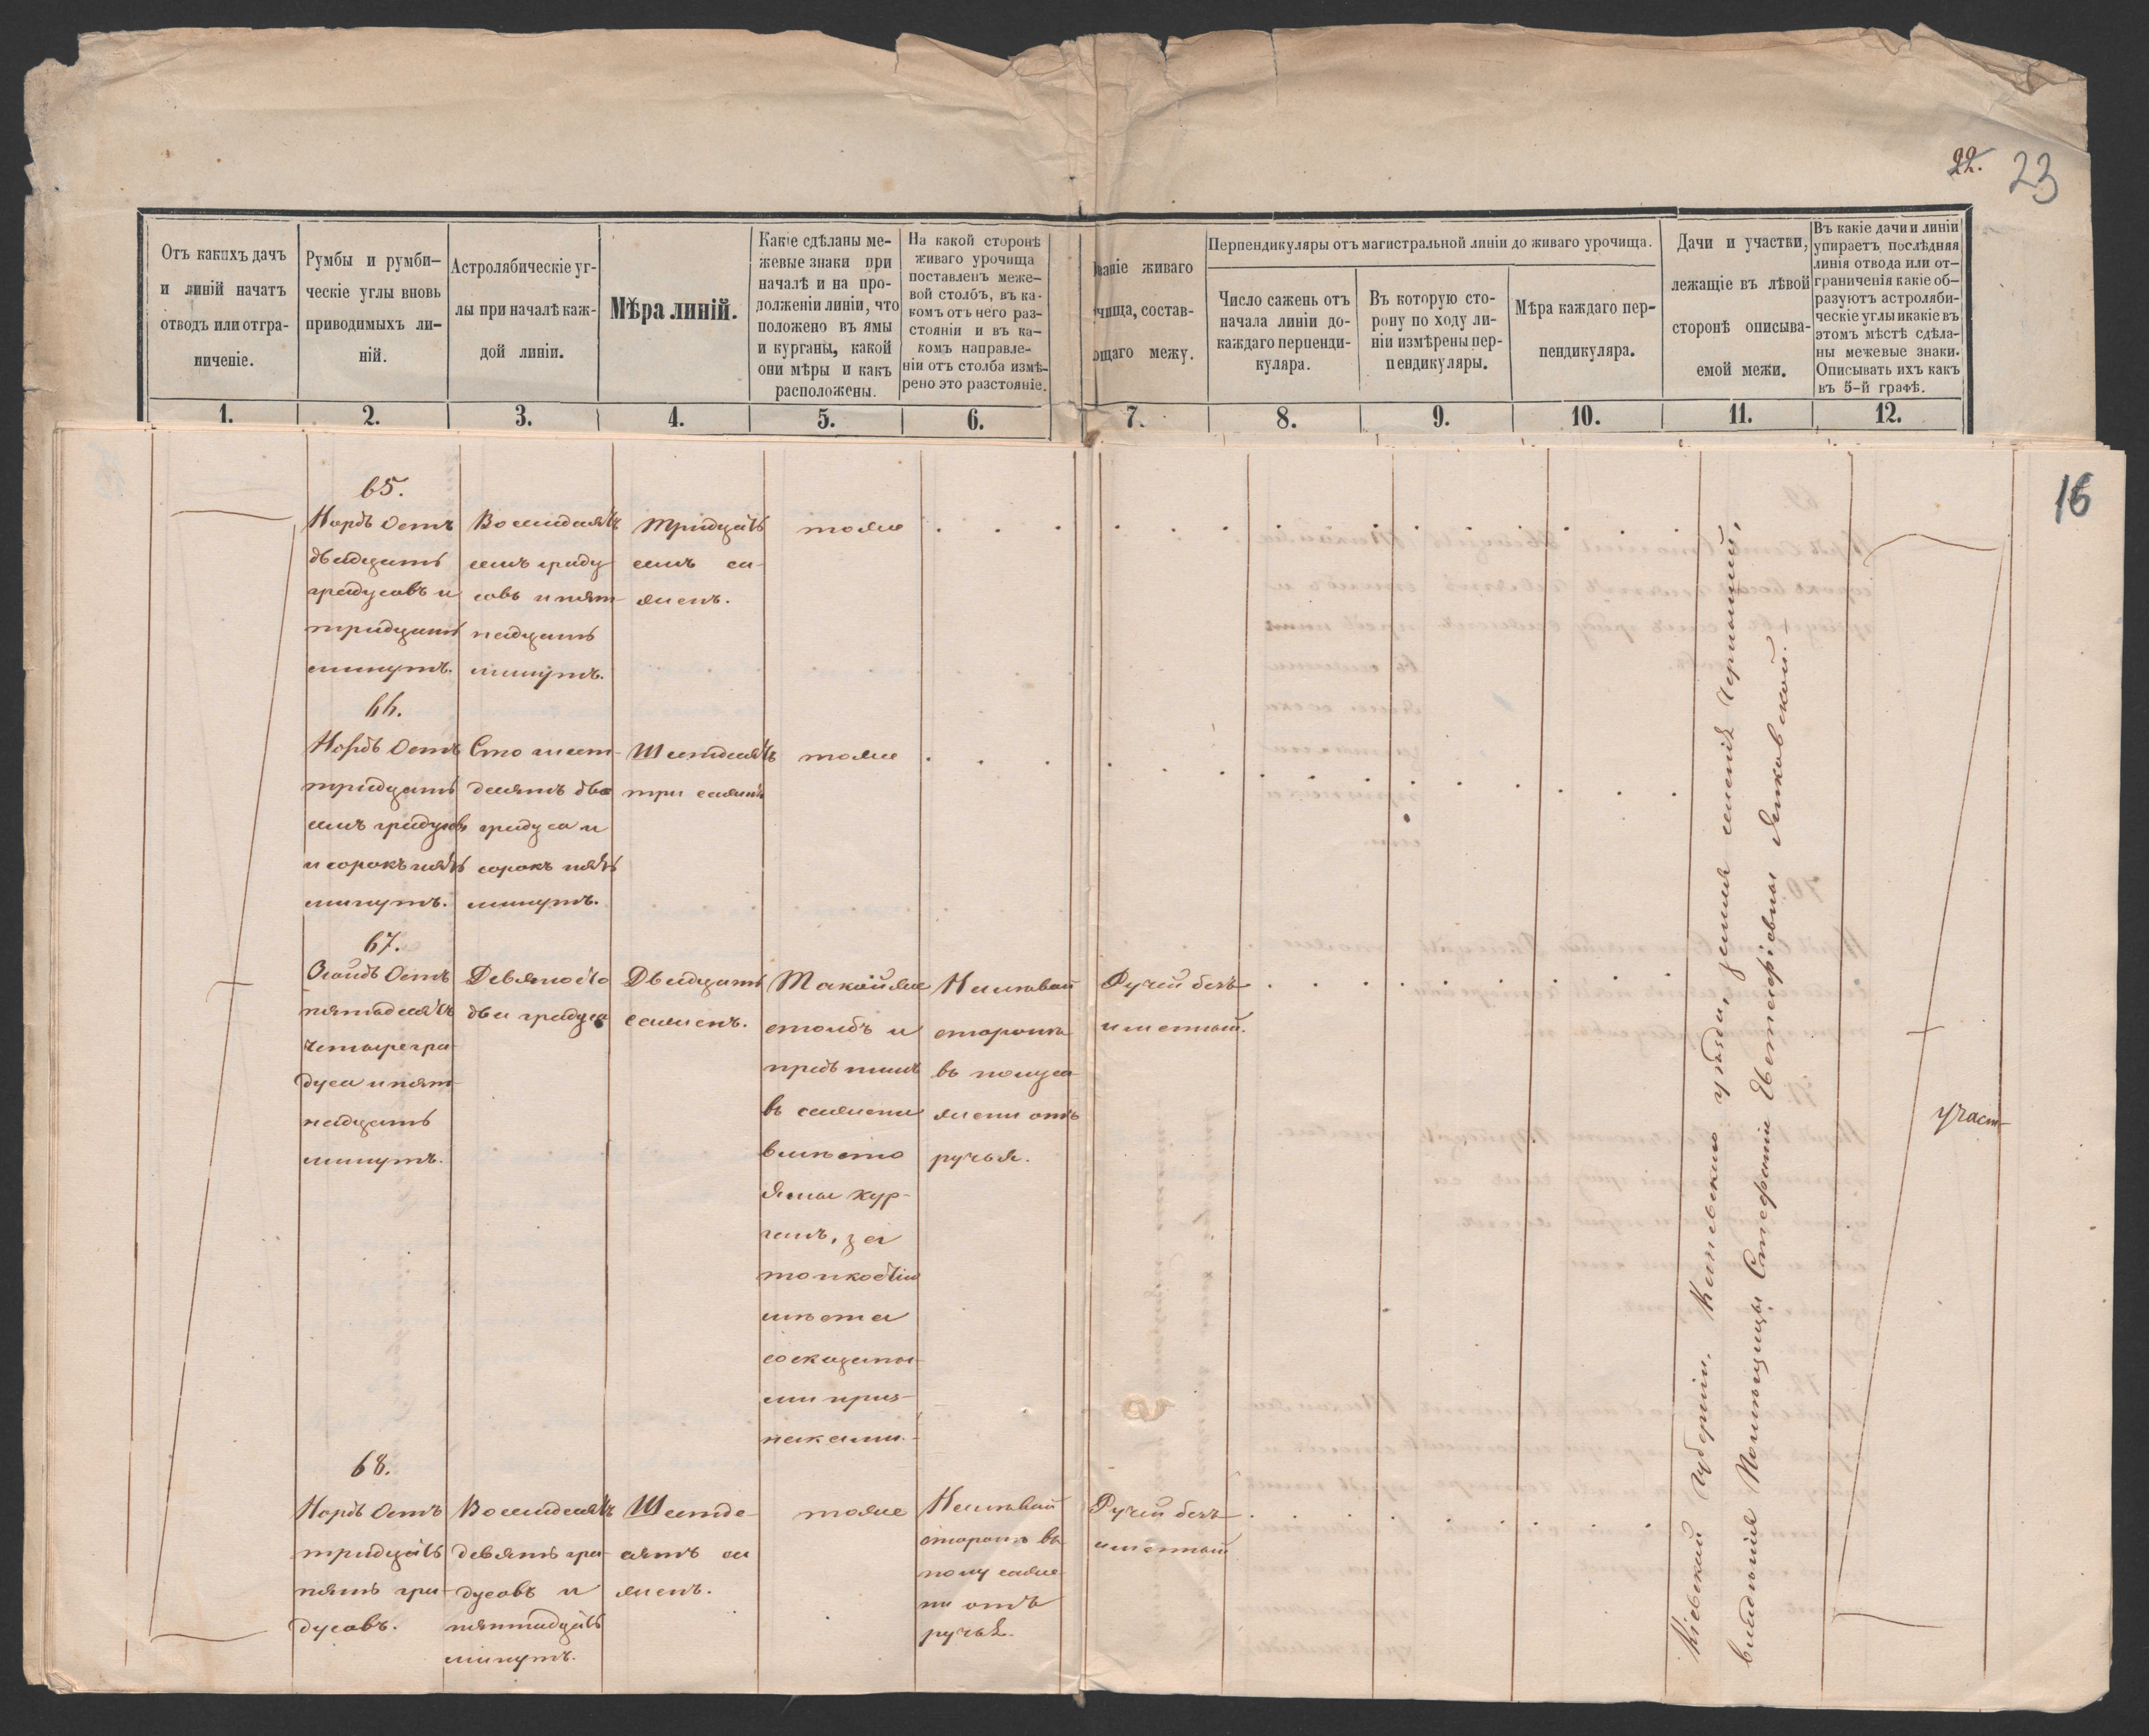 22. 23
Отъ какихъ дачъ
и линій начатъ
отводъ или отгра-
ниченіе.
Румбы и румби-
ческіе углы вновь
приводимыхъ ли-
ній.
Астролябическіе уг-
лы при началѣ каж-
дой линіи.
Мѣра линій.
Какіе сдѣланы ме-
жевые знаки при
началѣ и на про-
долженіи линіи, что
положено въ ямы
и курганы, какой
они мѣры и какъ
расположены.
На какой сторонѣ
живаго урочища
поставленъ меже-
вой столбъ, въ ка-
комъ отъ него раз-
стояніи и въ ка-
комъ направле-
ніи отъ столба измѣ-
рено это разстояніе.
ваніе живаго
чища, состав-
ющаго межу.
Перпендикуляры отъ магистральной линіи до живаго урочища.
Число сажень отъ
начала линіи до-
каждаго перпенди-
куляра.
Въ которую сто-
рону по ходу ли-
ніи измѣрены пер-
пендикуляры.
Мѣра каждаго пер-
пендикуляра.
Дачи и участки,
лежащіе въ лѣвой
сторонѣ описыва-
емой межи.
Въ какіе дачи и линіи
упираетъ послѣдняя
линія отвода или от-
граниченія какіе об-
разуютъ астроляби-
ческіе углы и какіе въ
этомъ мѣстѣ сдѣла-
ны межевые знаки.
Описывать ихъ какъ
въ 5-й графѣ.
1. 2. 3. 4. 5. 6. 7. 8. 9. 10. 11. 12.
16
65.
Нордъ Остъ
двадцать
градусовъ и
тридцать
минутъ.
Восемдесятъ
семь граду-
совъ и пят-
надцать
минутъ.
тридцать
семь са-
женъ.
тоже
66.
Нордъ Остъ
тридцать
семь градусовъ
и сорокъ пять
минутъ.
Сто шест-
десятъ два
градуса и
сорокъ пять
минутъ.
Шестдесятъ
три сажени
тоже
67.
Зюйдъ Остъ
пятьдесятъ
четыре гра-
дуса и пят-
надцать
минутъ.
Девяносто
два градуса
Двадцать
саженъ.
Такойже
столбъ и
предъ нимъ
въ сажени
вмѣсто
ямы кур-
ганъ, за
топкостію
мѣста
со сказаны-
ми приз-
наками.
На лѣвой
сторонѣ
въ полуса-
жени отъ
ручья.
Ручей безъ-
именный.
68.
Нордъ Остъ
тридцать
пять гра-
дусовъ.
Восемдесятъ
девять гра-
дусовъ и
пятнадцать
минутъ.
Шестде-
сятъ са-
женъ.
тоже
На лѣвой
сторонѣ въ
полусаже-
ни отъ
ручья.
Ручей безъ-
именный
Кіевской Губерніи, Каневскаго уѣзда, земля имѣнія
владѣнія Помѣщицы Стефаніи
участ-